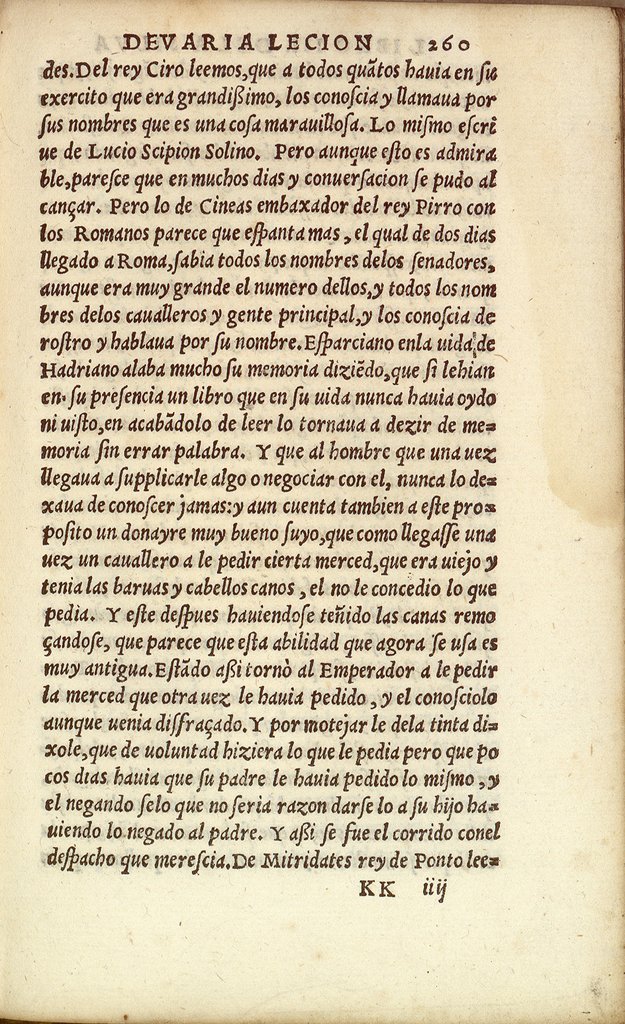 DEVARIA LECION 260
des.Del rey Ciro leemos,que a todos quãtos hauia en ſu
exercito que era grandißimo, los conoſcia y llamaua por
ſus nombres que es una coſa marauilloſa. Lo miſmo eſcri
ue de Lucio Scipion Solino. Pero aunque eſto es admira
ble,pareſce que en muchos dias y conuerſacion ſe pudo al
cançar. Pero lo de Cineas embaxador del rey Pirro con
los Romanos parece que eſpanta mas, el qual de dos dias
llegado a Roma,ſabia todos los nombres delos ſenadores,
aunque era muy grande el numero dellos,y todos los nom
bres delos caualleros y gente principal,y los conoſcia de
roſtro y hablaua por ſu nombre.Eſparciano enla uida,de
Hadriano alaba mucho ſu memoria diziẽdo,que ſi lehian
en ſu preſencia un libro que en ſu uida nunca hauia oydo
ni uiſto,en acabãdolo de leer lo tornaua a dezir de me=
moria ſin errar palabra. Y que al hombre que una uez
llegaua a ſupplicarle algo o negociar con el, nunca lo de=
xaua de conoſcer jamas:y aun cuenta tambien a eſte pro=
poſito un donayre muy bueno ſuyo,que como llegaſſe una
uez un cauallero a le pedir cierta merced,que era uiejo y
tenia las baruas y cabellos canos, el no le concedio lo que
pedia. Y eſte deſpues hauiendoſe teñido las canas remo
çandoſe, que parece que eſta abilidad que agora ſe uſa es
muy antigua.Eſtãdo aßi tornò al Emperador a le pedir
la merced que otra uez le hauia pedido, y el conoſciolo
aunque uenia diſfraçado.Y por motejar le dela tinta di=
xole,que de uoluntad hiziera lo que le pedia pero que po
cos dias hauia que ſu padre le hauia pedido lo miſmo, y
el negando ſelo que no ſeria razon darſe lo a ſu hijo ha=
uiendo lo negado al padre. Y aßi ſe fue el corrido conel
deſpacho que mereſcia.De Mitridates rey de Ponto lee=
KK iiij